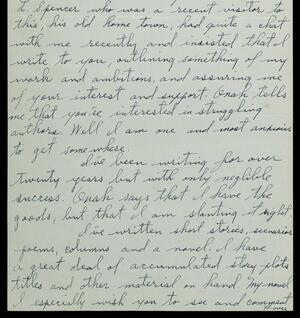 t. Spencer who was a recent visitor to
this, his old home town, had quite a chat
with me recently and insisted that I
write to you, outlining something of my
work and ambitions, and assuring me
of your interest and support. Onah tells
me that you're interested in struggling
authors. Well I am one and most anxious
to get somewhere.
I've been writing for over
twenty years but with only neglible
success. Onah says that I have the
goods, but that I am slanting it
I've written short stories, scenarios
poems, columns and a novel. I have
a great deal of accumulated story plots
titles and other material on hand. My novel
I especially wish you to see and comment
over